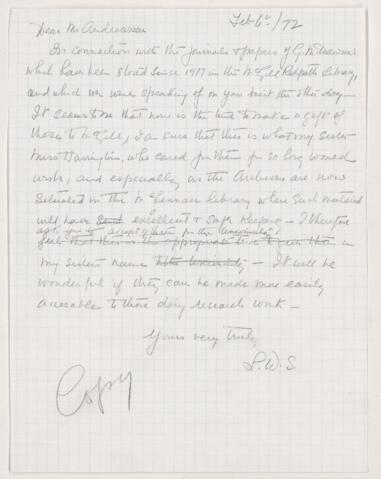 Feb 6th/72
Dear Mr Andreassen
In connection with the journals & papers of G. M. Dawson
which have been stored since 1917 in the McGill Redpath Library,
and which we were speaking of on your visit the other day —
It seems to me that now is the time to make a gift of
these to McGill, I am sure that this is what my sister
Miss Harrington, who cared for them for so long would
wish, and especially as the Archives are now
situated in the McLennan Library where such material
will have excellent & safe keeping — I therefore
ask you to accept them for the University
feel that this is the appropriate in
my sister's name the University — It will be
wonderful if they can be made more easily
accessable to those doing research work —
Yours very truly
L. W. S.
Copy